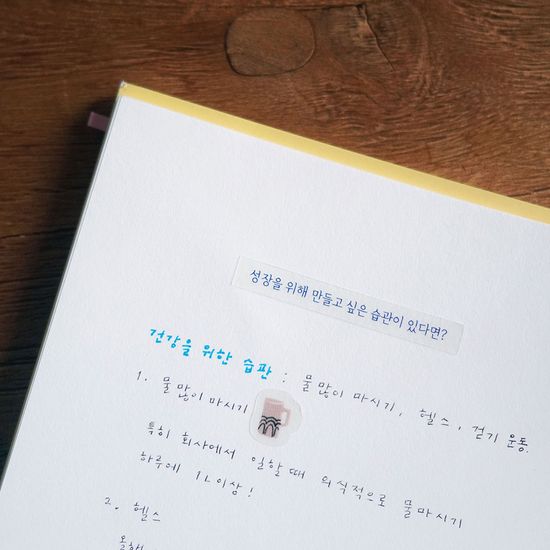 성장을 위해 만들고 싶은 습관이 있다면?
건강을 위한 습관 : 물 많이 마시기, 헬스, 걷기 운동.
1. 물 많이 마시기
특히 회사에서 일할 때 의식적으로 물마시기
하루에 1L이상!
2. 헬스